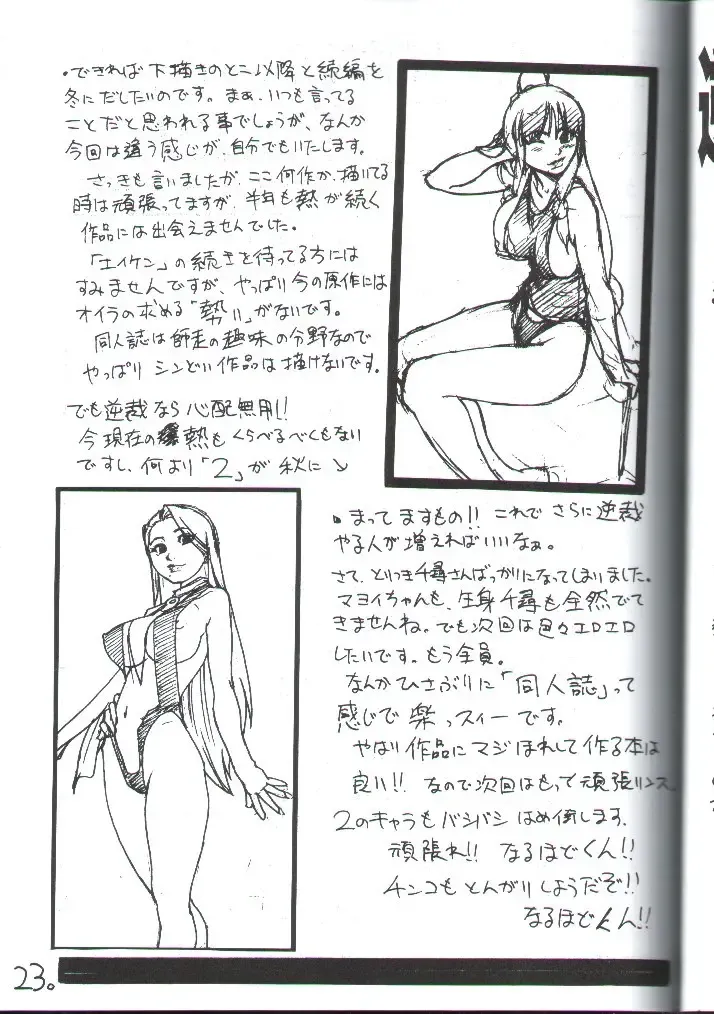 ・できれば下描きのとこ以降と続編を
冬にだしたいのです。まぁ、いつも言ってる
ことだと思われる事でしょうが、なんか
今回は違う感じが、自分でもいたします。
さっきも言いましたが、ここ何作か、描いてる
時は頑張ってますが、半年も熱が続く
作品には出会えませんでした。
「エイケン」の続きを待ってる方には
すみませんですが、やっぱり今の原作には
オイラの求める「勢い」がないです。
同人誌は師走の趣味の分野なので
やっぱりシンどい作品は描けないです。
でも逆裁なら心配無用!!
今現在の熱もくらべるべくもない
ですし、何より「2」が秋に
・まってますもの!! これでさらに逆裁
やる人が増えればいいなぁ。
さて、とりつき千尋さんばっかりになってしまいました。
マヨイちゃんも、生身千尋も全然でて
きませんね。でも次回は色々エロエロ
したいです。もう全員。
なんかひさぶりに「同人誌」って
感じで楽っスィーです。
やはり作品にマジほれして作る本は
良い!! なので次回はもって頑張リンス
2のキャラもバシバシはめ倒します。
頑張れ!! なるほどくん!!
チンコもとんがりしようだぞ!!
なるほどくん!!
23。